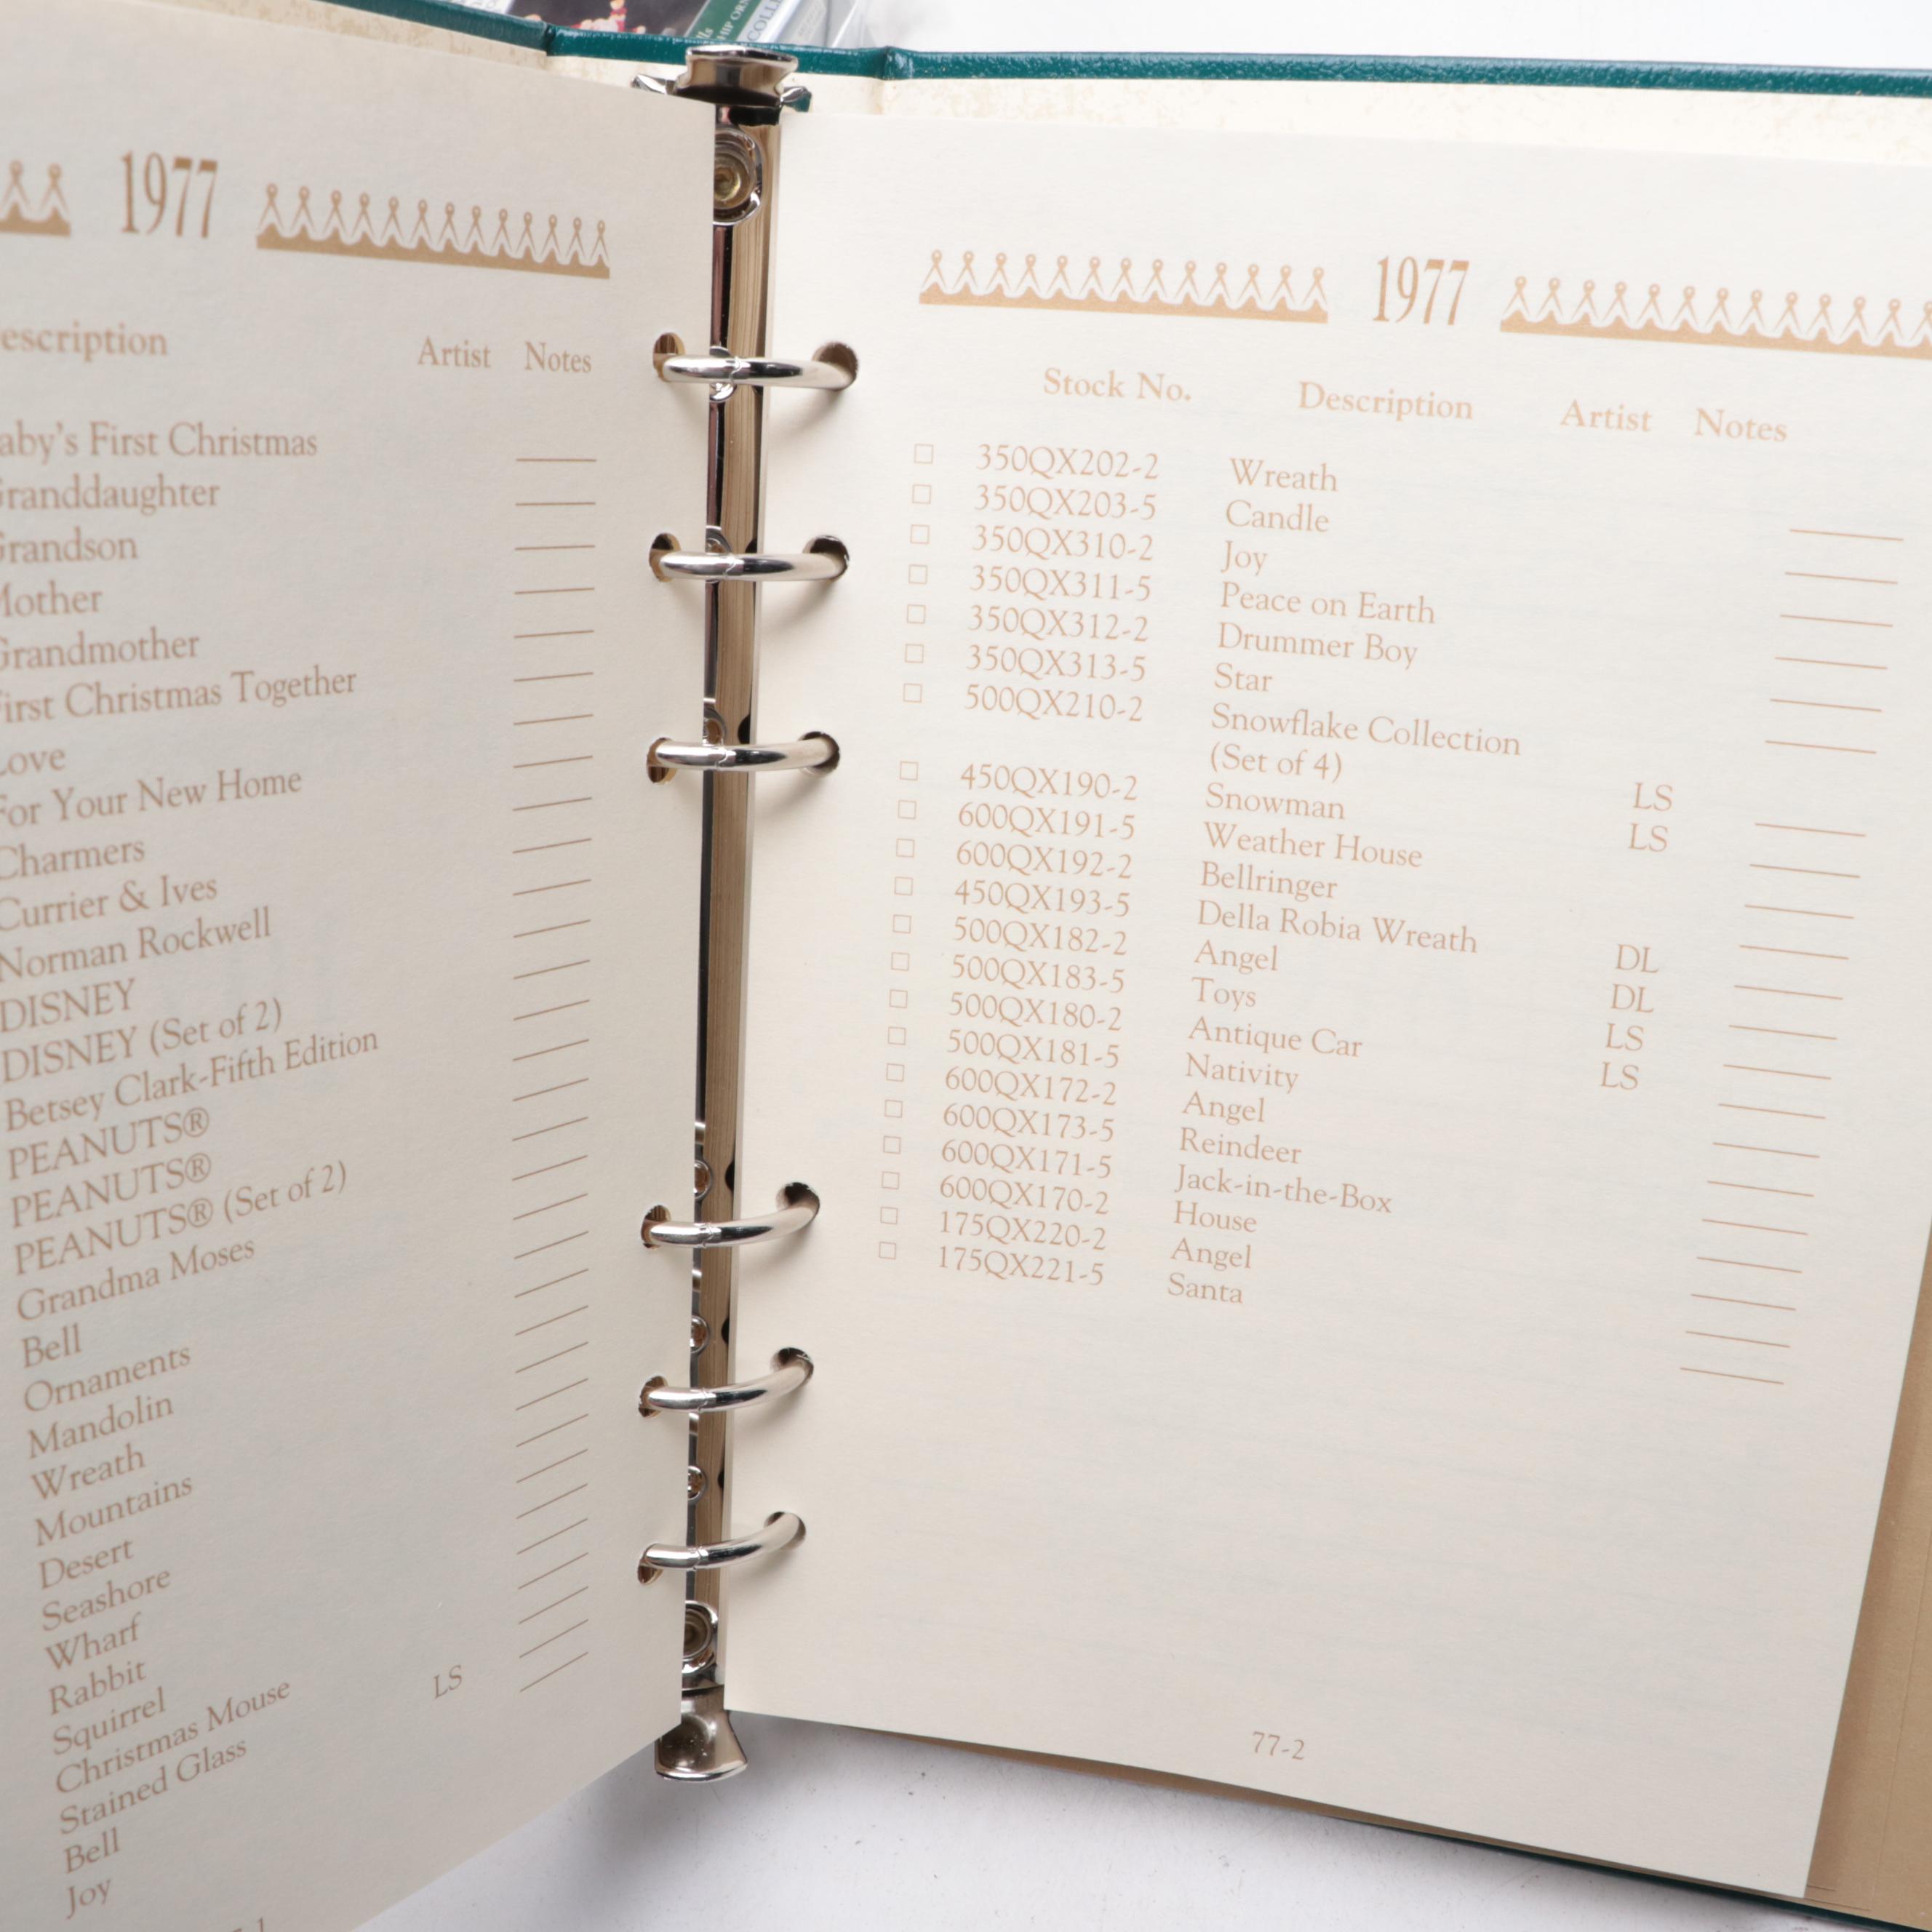 1977
escription Artist Notes
aby's First Christmas
randdaughter
randson
other
randmother
irst Christmas Together
ove
For Your New Home
Charmers
Currier & Ives
Norman Rockwell
DISNEY
DISNEY (Set of 2)
Betsey Clark-Fifth Edition
PEANUTS®
PEANUTS®
PEANUTS® (Set of 2)
Grandma Moses
Bell
Ornaments
Mandolin
Wreath
Mountains
Desert
Seashore
Wharf
Rabbit
Squirrel
Christmas Mouse LS
Stained Glass
Bell
Joy
1977
Stock No. Description Artist Notes
□ 350QX202-2 Wreath
□ 350QX203-5 Candle
□ 350QX310-2 Joy
□ 350QX311-5 Peace on Earth
□ 350QX312-2 Drummer Boy
□ 350QX313-5 Star
□ 500QX210-2 Snowflake Collection
(Set of 4) LS
□ 450QX190-2 Snowman LS
□ 600QX191-5 Weather House
□ 600QX192-2 Bellringer
□ 450QX193-5 Della Robia Wreath DL
□ 500QX182-2 Angel DL
□ 500QX183-5 Toys LS
□ 500QX180-2 Antique Car LS
□ 500QX181-5 Nativity
□ 600QX172-2 Angel
□ 600QX173-5 Reindeer
□ 600QX171-5 Jack-in-the-Box
□ 600QX170-2 House
□ 175QX220-2 Angel
□ 175QX221-5 Santa
77-2